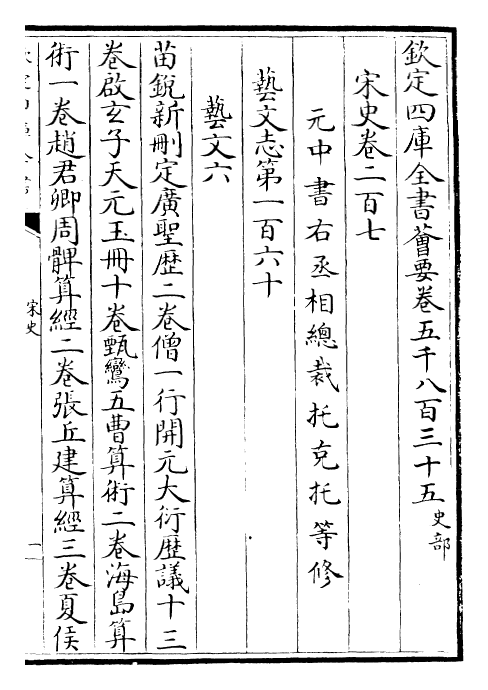 欽定四庫全書薈要卷五千八百三十五 史部
宋史卷二百七
元中書右丞相總裁托克托等修
藝文志第一百六十
藝文六
苗銳新刪定廣聖歴二卷僧一行開元大衍歴議十三
卷啟玄子天元玉冊十卷甄鸞五曹算術二卷海島算
術一卷趙君卿周髀算經二卷張丘建算經三卷夏侯
宋史